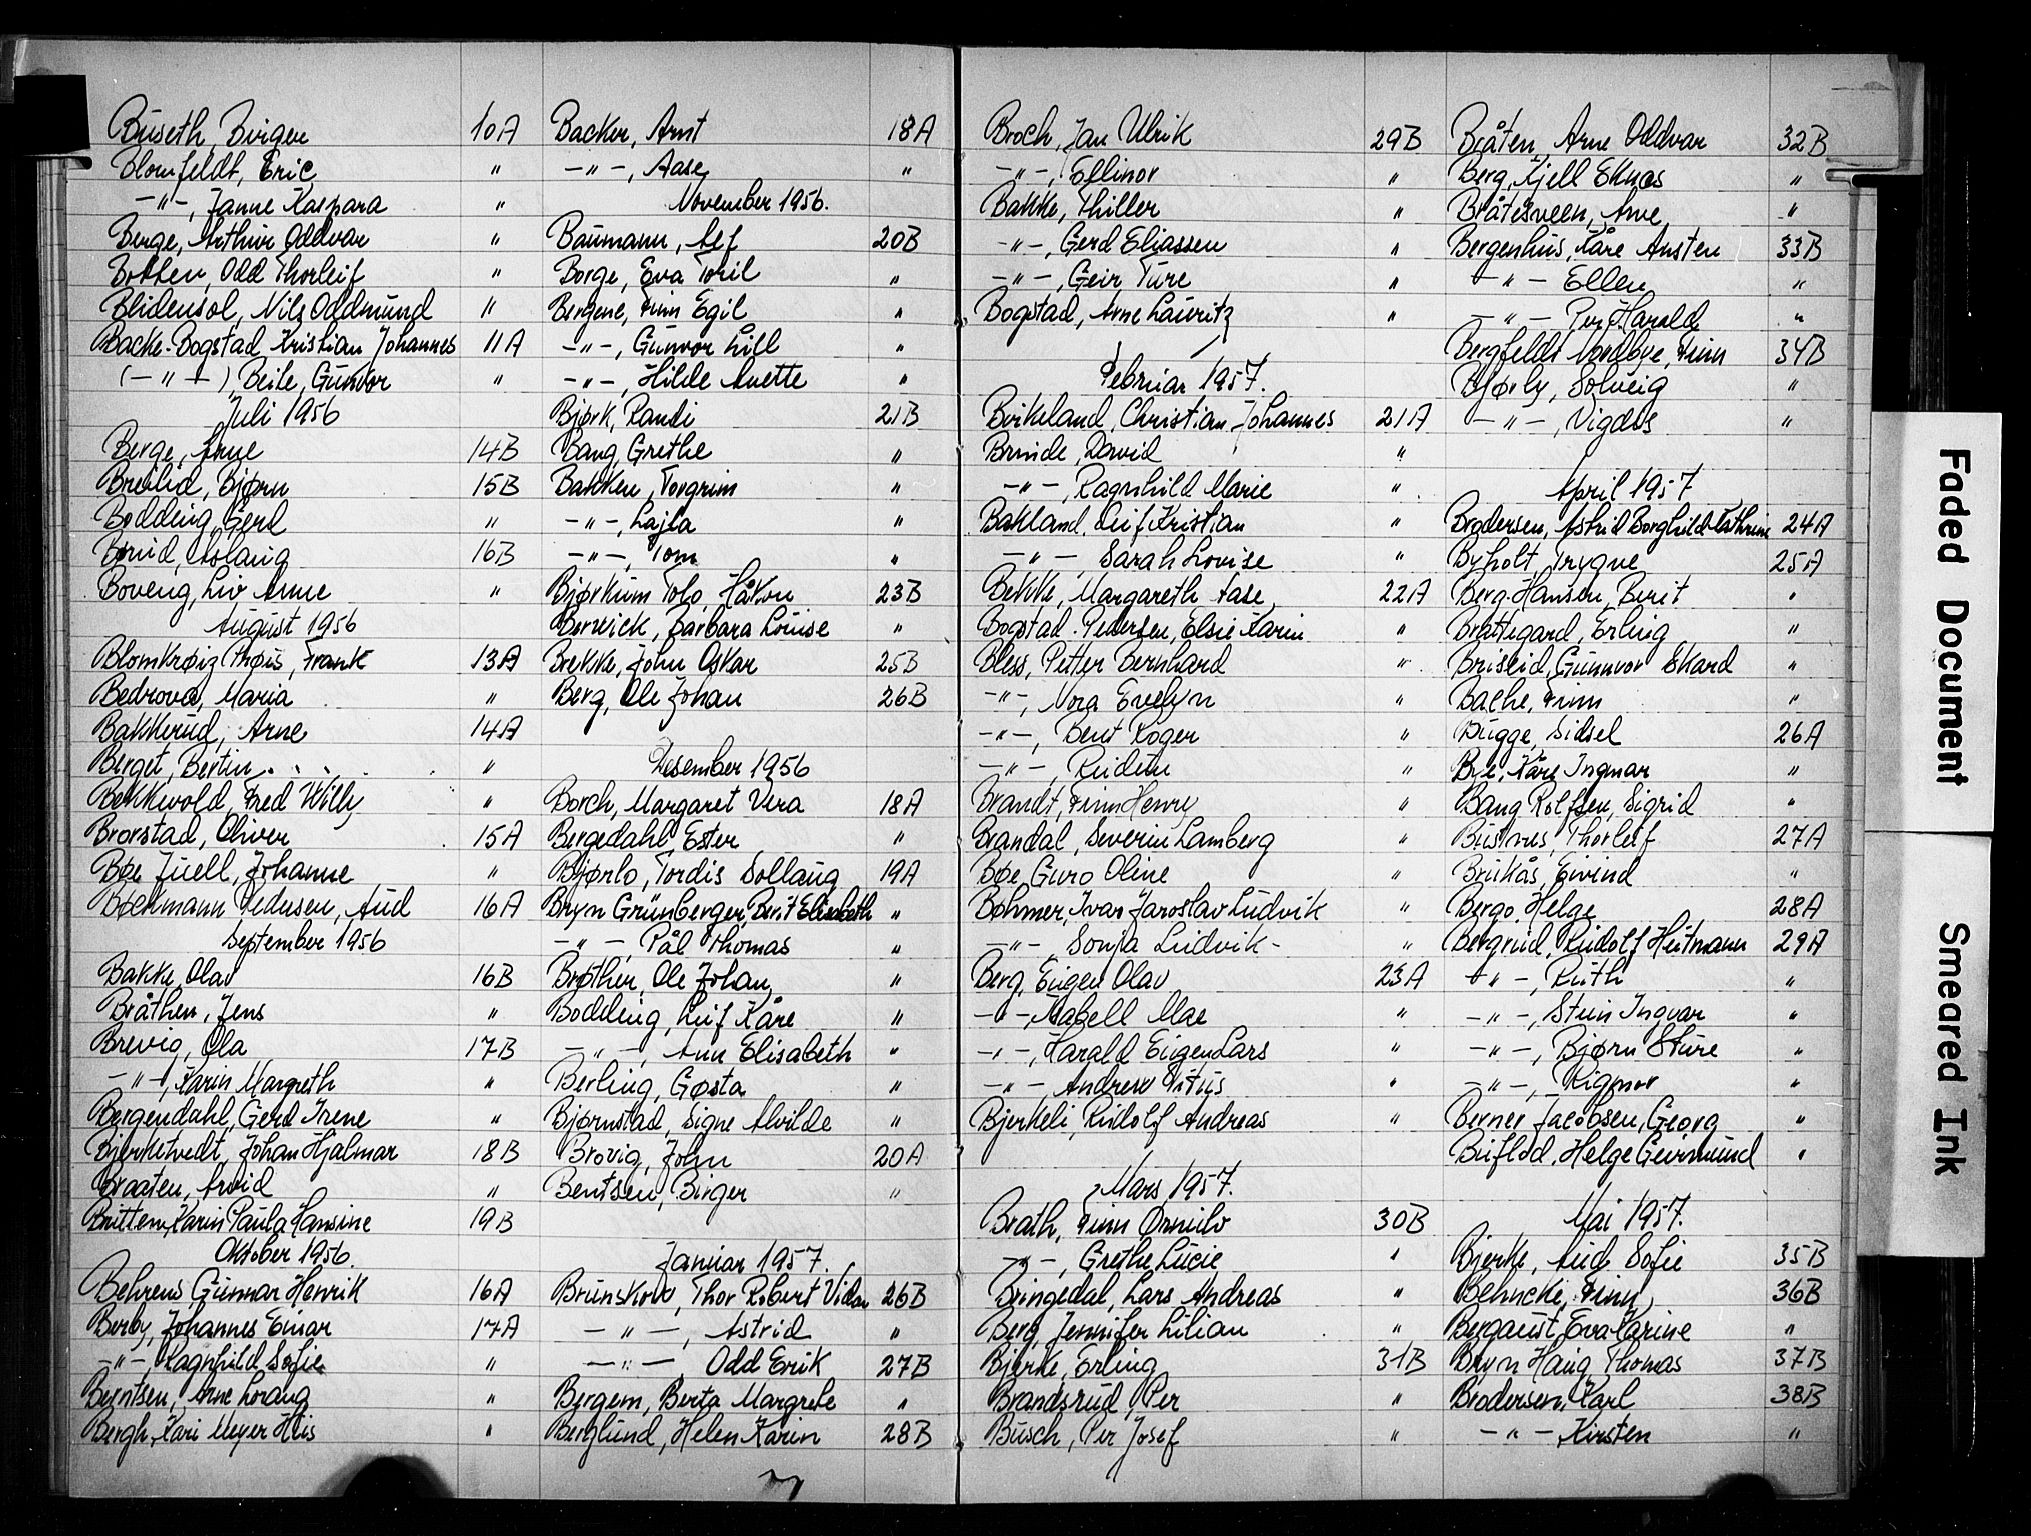 Buseth, Birger 10A
Blomfeldt, Eric "
-"-, Janne Kaspara "
Berge, Arthur Oddvar "
Botten, Odd Thorleif "
Blidensol, Nils Oddmund "
Backe-Bogstad Kristian Johannes 11A
(-"-), Beile, Gunvor "
Juli 1956
Berge, Arne 14B
Breilid, Bjørn 15B
Bodding, Gerd "
Aslaug 16B
Boveng, Liv Anne "
August 1956
Frank 13A
Bedrova, Maria "
Bakkerud, Arne 14A
Berget, Bertin "
Bekkevold, Fred Willy "
Brorstad, Oliver 15A
Bøe Juell, Johanne "
Bøckmann Pedersen, Aud 16A
September 1956
Bakke, Olav 16B
Bråthen, Jens "
Brevig, Ola 17B
-"-, Karin Margreth "
Bergendahl, Gerd Irene "
Bjerketvedt, Johan Hjalmar 18B
Braaten, Arvid "
Brittem, Karin Paula Hansine 19B
Oktober 1956.
Behrens, Gunnar Henrik 16A
Berby, Johannes Einar 17A
-"-, Ragnhild Sofie "
Berntsen, Arne Lorang "
Bergh, Kari Meyer Hiis "
Backer, Arnt 18A
-"-, Aase "
November 1956.
Baumann, Alf 20B
Borge, Eva Toril "
Bergene, Finn Egil "
-"-, Gunvor Lill "
-"-, Hilde Anette "
Bjørk, Randi 21B
Bang, Grethe "
Bakken, Torgrim "
-"-, Lajla "
-"-, Tom "
Bjørkum Tolo, Håkon 23B
Berwick, Barbara Louise "
Brekke, John Oskar 25B
Berg, Ole Johan 26B
Desember 1956
Borch, Margaret Vera 18A
Bergedahl, Ester "
Bjørlo, Tordis Sollaug 19A
Bryn Grünberger, Berit Elisabeth "
-"-, Pål Thomas "
Brøther, Ole Johan "
Bodding, Leif Kåre "
-"-, Ann Elisabeth "
Berling, Gøsta "
Bjørnstad, Signe Alvilde "
Brovig, John 20A
Bentsen, Birger "
Januar 1957.
Brunskow, Thor Robert Vidar 26B
-"-, Astrid "
-"-, Odd Erik 27B
Bergem, Berta Margrete "
Berglund, Helen Karin 28B
Broch, Jan Ulrik 29B
-"-, Ellinor "
Bakke, Thiller "
-"-, Gerd Eliassen "
-"-, Geir Ture "
Bogstad, Arne Lauritz "
Februar 1957.
Birkeland, Christian Johannes 21A
Brinde, David "
-"-, Ragnhild Marie "
Bakland, Leif Kristian "
-"-, Sarah Lovise "
Bekke, Margareth Aase 22A
Bogstad-Pedersen, Elsie Karin "
Bless, Petter Bernhard "
-"-, Nora Evelyn "
-"-, Bent Roger "
-"-, Reidun "
Brandt, Finn Henry "
Brandal, Severin Lamberg "
Bøe, Guro Oline "
Bøhmer, Ivar Jaroslav Ludvik "
-"-, Sonja Ludvik- "
Berg, Eugen Olav 23A
-"-, Mabell Mae "
-"-, Harald Eugen Lars "
-"- Andrew Vitus "
Bjerkeli, Rudolf Andreas "
Mars 1957.
Brath, Finn Ørnulv 30B
-"-, Grethe Lucie "
Bringedal, Lars Andreas "
Berg, Jennifer Lilian "
Bjerke, Erling 31B
Brandsrud, Per "
Busch, Per Josef "
Bråten, Arne Oddvar 32B
Berg, Kjell Eknes "
Bråtesveen, Arve "
Bergenhus, Kåre Austen 33B
-"- Ellen "
-"- Per Harald "
Bergfeldt Nordbye, Finn 34B
Bjørly, Solveig "
-"-, Vigdis "
April 1957
Brodersen, Astrid Borghild Cathrine 24A
Byholt, Trygve 25A
Berg-Hansen, Berit "
Brattegard, Erling "
Briseid, Gunnvor Skard "
Bache, Finn "
Bugge, Sidsel 26A
Bye, Kåre Ingmar "
Bang Rolfsen, Sigrid "
Busnes, Thorleif 27A
Brukås, Eivind "
Bergo, Helge 28A
Bergrud, Rudolf Heitmann 29A
-"-, Ruth "
-"-, Stein Ingvar "
-"-, Bjørn Sture "
-"-, Rigmor "
Berner Jacobsen, Georg "
Buflod, Helge Geirmund "
Mai 1957.
Bjerke, Aud Sofie 35B
Behncke, Finn 36B
Bergquist, Eva Karine "
Bryn Haug, Thomas 37B
Brodersen, Karl 38B
-"-, Kirsten "
Faded Document
Smeared Ink